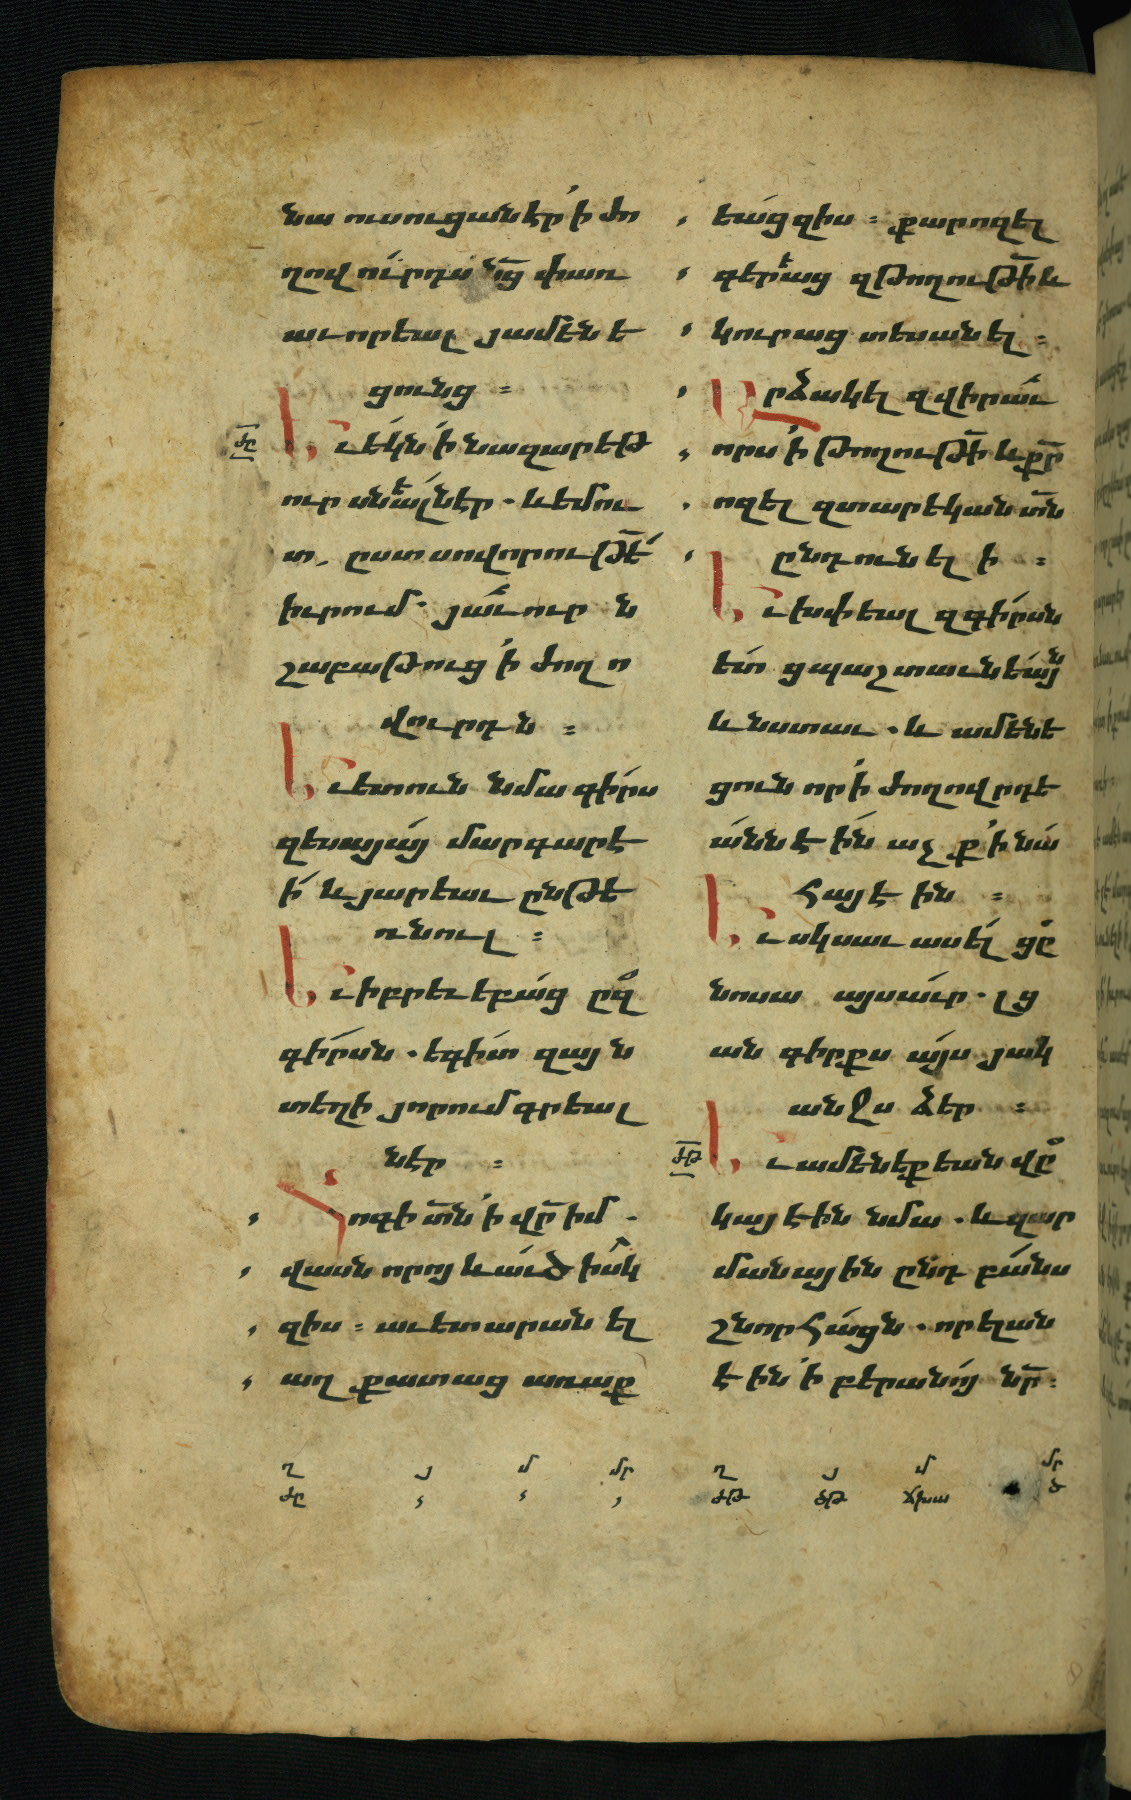 նա ուսուցանէր ՛ի ժո
ղովուրդս նց փառ
աւորեալ յամենե
ցունց ։
ԺԸ
Եւ եկն ՛ի նազարեթ
ուր սնեալն էր . և եմու
տ , ըստ սովորութե
իւրում . յաւուր ն
շաբաթուց ՛ի ժողո
վուրդն ։
Եւ ետուն նմա գիրս
զեսայայ մարգարէ
ի և յարեաւ ընթե
ռնուլ ։
Եւ իբրեւ եբաց ըզ
գիրսն . եգիտ զայն
տեղի յորում գրեալ
էր ։
Հոգի տն ՛ի վր իմ .
վասն որոյ և աւծ իսկ
զիս ։ աւետարանել
աղքատաց առաք
եաց զիս ։ քարոզել
գերեաց զթողութի և
կուրաց տեսանել ։
Արձակել զվիրաւ
որս ՛ի թողութի և քր
ոզել զտարեկան տն
ընդունելի ։
Եւ խփեալ զգիրսն
ետ ցպաշտաւնեայն
և նստաւ . և ամենե
ցուն որ ՛ի ժողովրդե
անն էին աչք ՛ի նա
հայէին ։
Եւ սկսաւ ասել ցը
նոսա այսաւր . լց
ան գիրքս այս յակ
անջս ձեր ։
ԺԹ
Եւ ամենեքեան վը
կայէին նմա . և զար
մանային ընդ բանս
շնորհացն . որ ելան
էին ՛ի բերանոյ նր ։
Ղ Յ Մ ՄՐ Ղ Յ Մ ՄՐ
ԺԸ ԺԹ ԾԹ ՃԽԱ Ծ